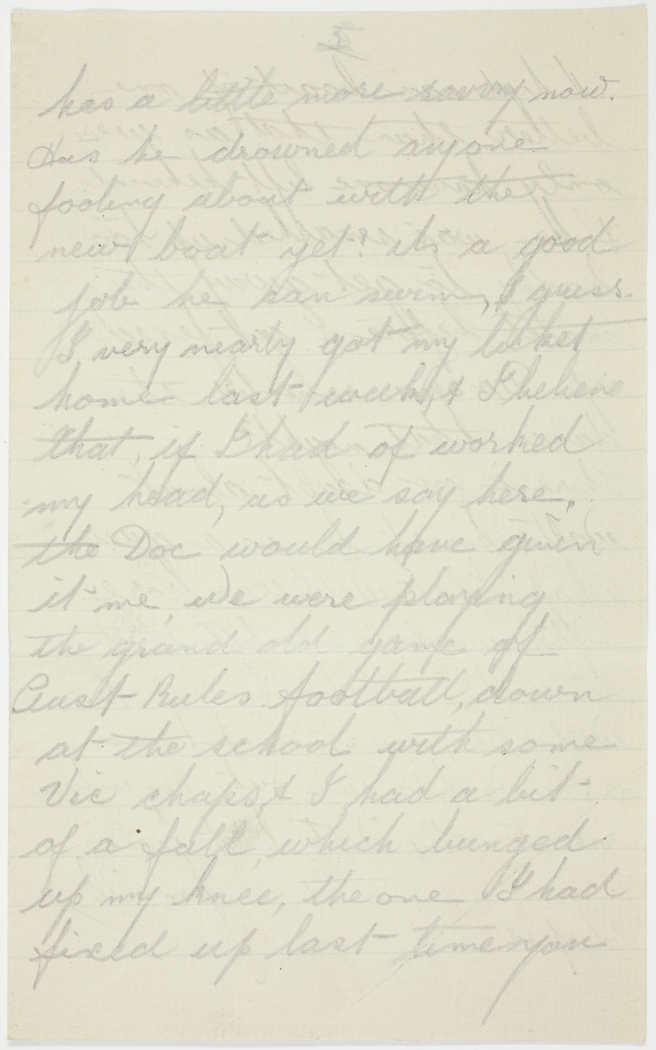 3
has a little more savvy now.
Has he drowned anyone
fooling about with the
new boat yet? its a good
job he can swim, I guess.
I very nearly got my ticket
home last week, & I believe
that, if I had of worked
my head, as we say here,
the Doc would have given
it me, We were playing
the grand old game of
Aust Rules football, down
at the school with some
Vic chaps, & I had a bit
of a fall, which bunged
up my knee, the one I had
fixed up last time you